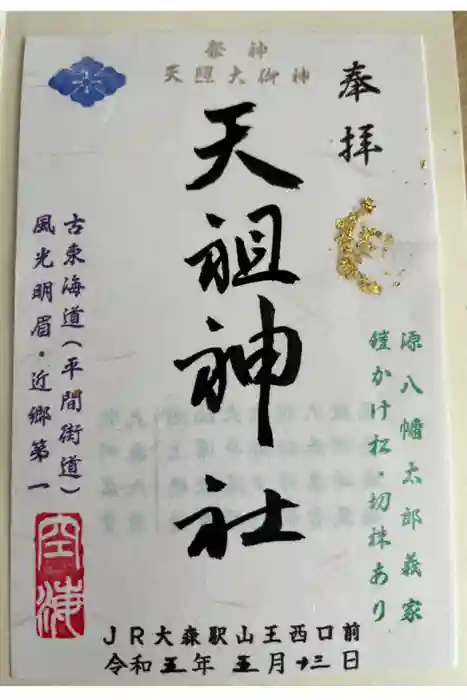 奉拝
祭神
天照大御神
天祖神社
源八幡太郎義家
鎧かけ松・切株あり
古東海道(平間街道)
風光明眉・近郷第一
JR大森駅山王西口前
令和五年五月十三日